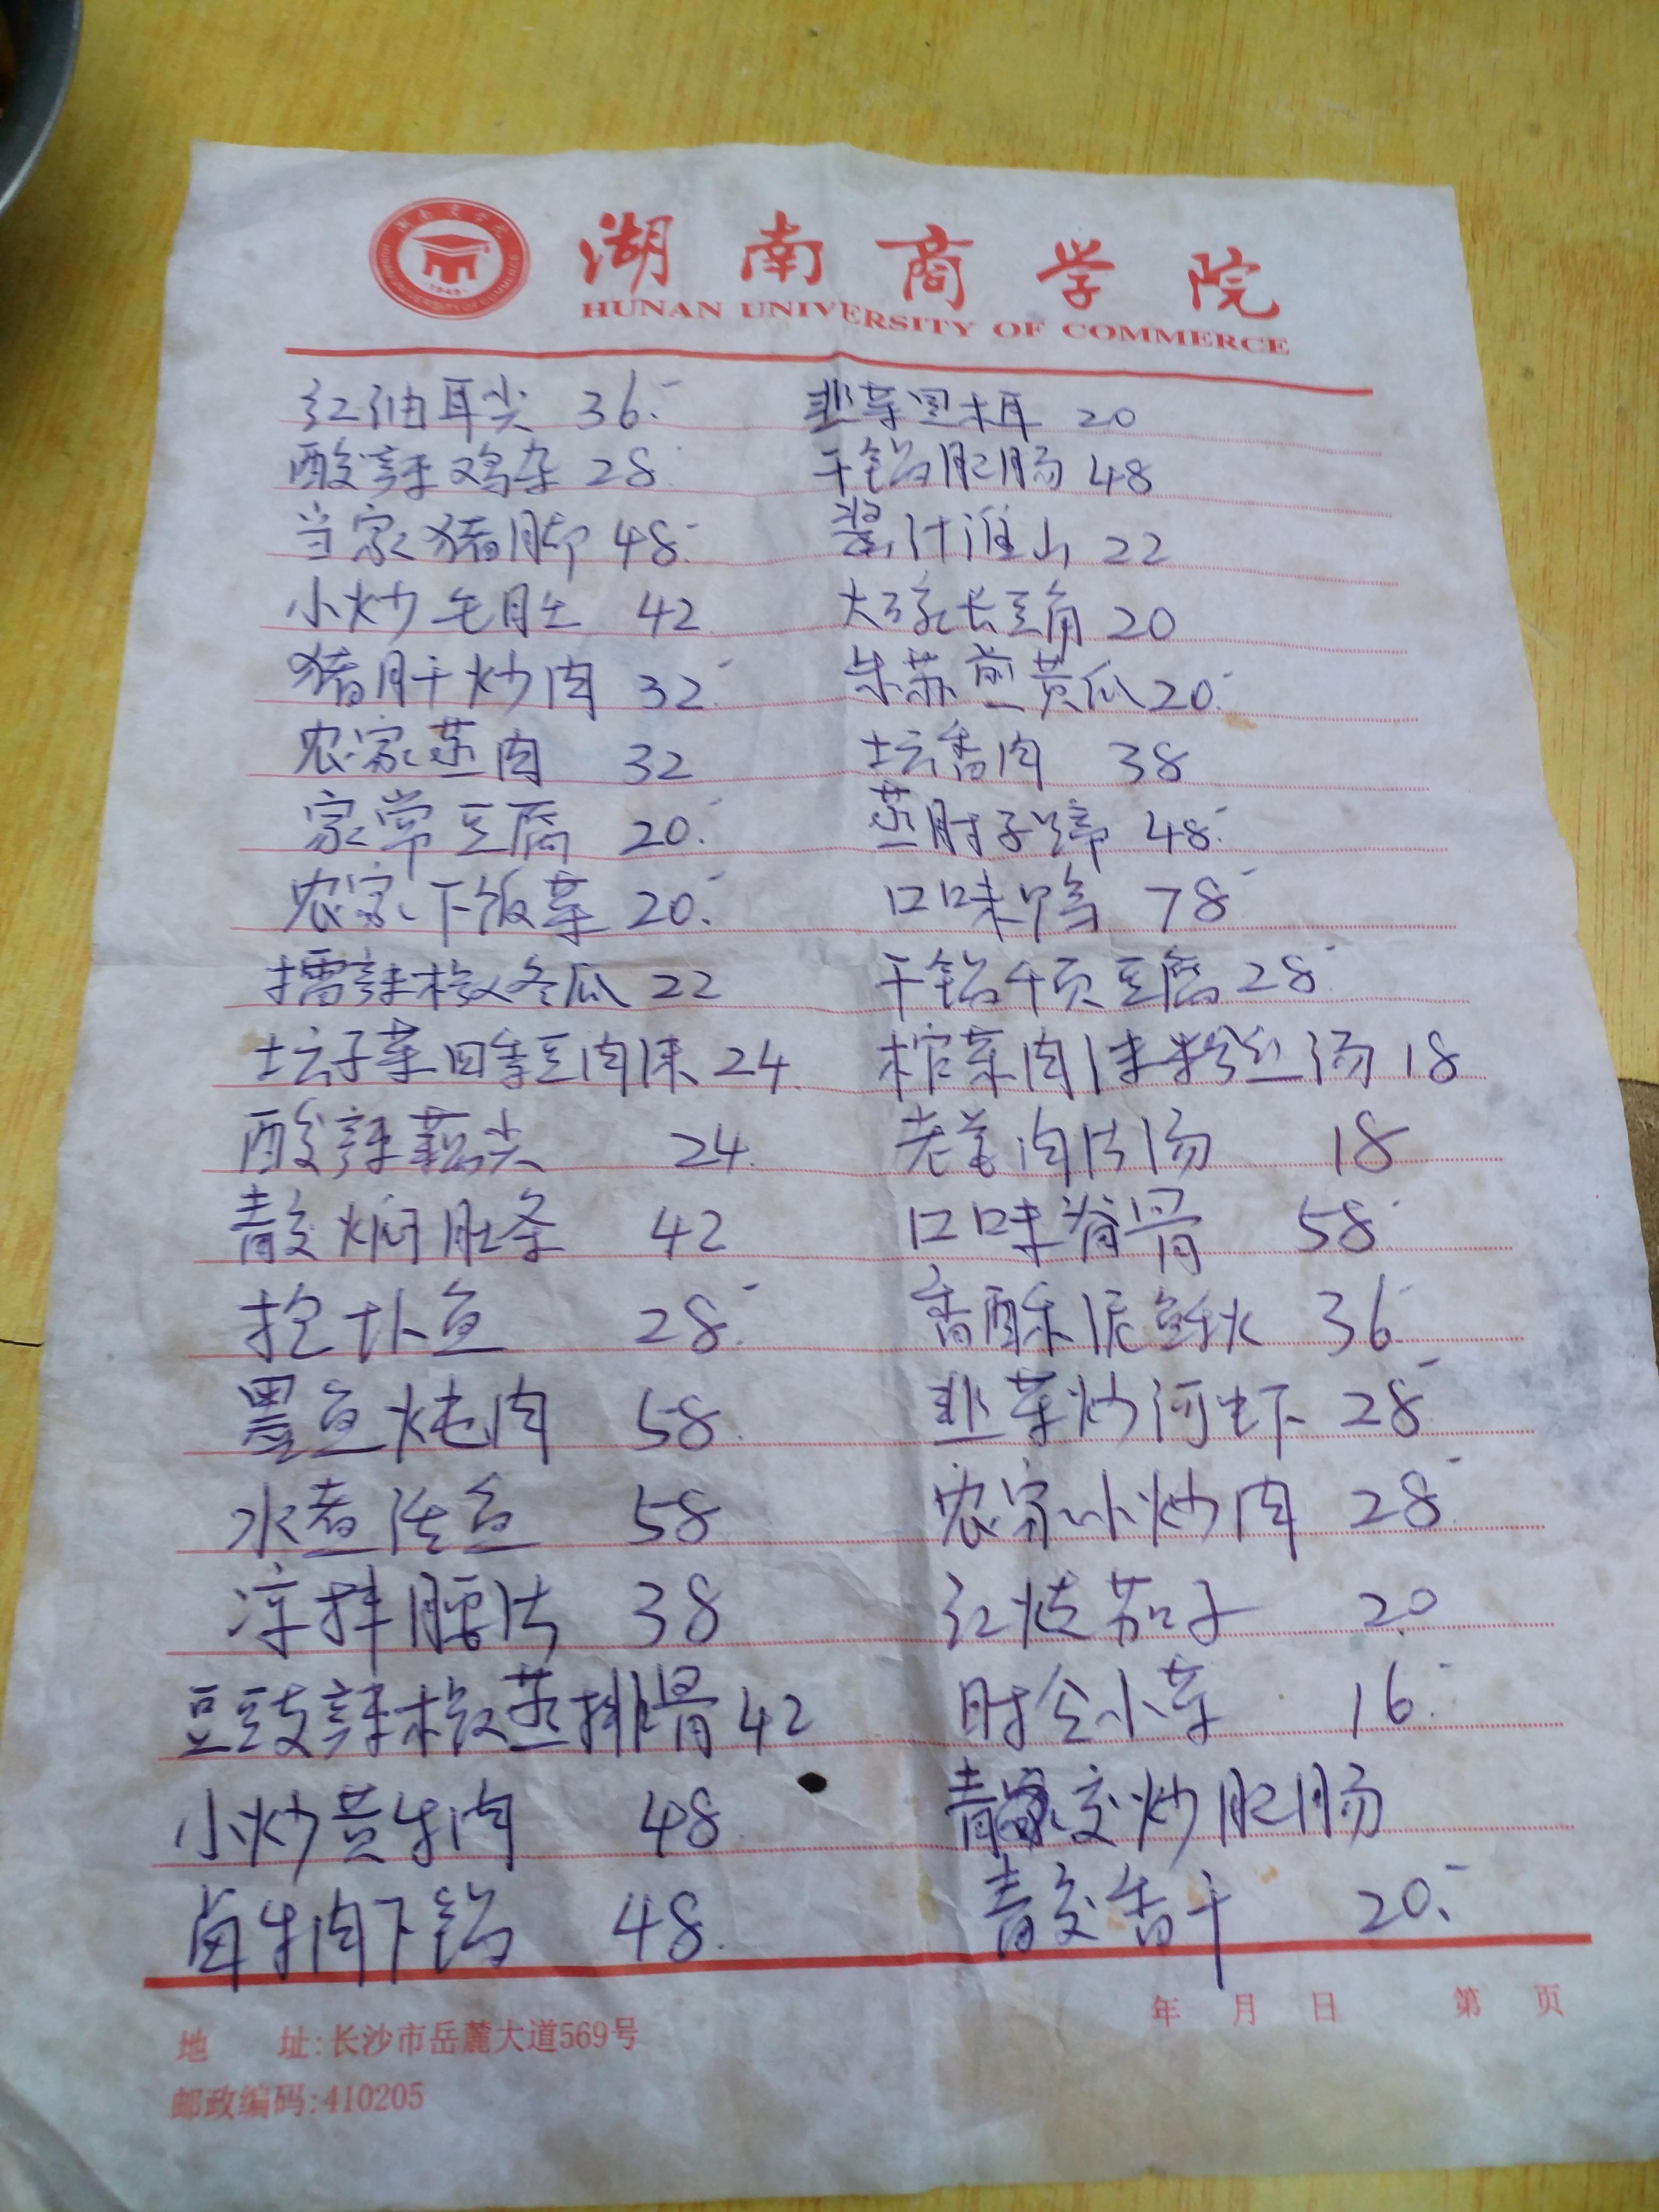 湖南商学院
HUNAN UNIVERSITY OF COMMERCE
红油耳尖 36.-
酸辣鸡杂 28
当家猪脚 48.-
小炒毛肚 42
猪肝炒肉 32.-
农家蒸肉 32
家常豆腐 20.-
农家下饭菜 20.-
擂辣椒冬瓜 22
坛子菜四季豆肉沫 24.
酸辣藕尖 24.
青交焖肚条 42
抱卜鱼 28.-
墨鱼炖肉 58.
水煮活鱼 58
凉拌腰片 38
豆豉辣椒蒸排骨 42
小炒黄牛肉 48.
卤牛肉下锅 48.
韭菜黑木耳 20
干锅肥肠 48
浆汁淮山 22
大球长豆角 20
紫苏煎黄瓜 20.-
坛香肉 38
蒸肘子蹄 48.-
口味鸭 78-
干锅千页豆腐 28.-
榨菜肉沫粉丝汤 18
老姜肉片汤 18
口味脊骨 58.-
香酥泥鳅 36.-
韭菜炒河虾 28.-
农家小炒肉 28.-
红烧茄子 20
时令小菜 16.-
青交炒肥肠
青交香干 20.-
年 月 日 第 页
地 址:长沙市岳麓大道569号
邮政编码:410205